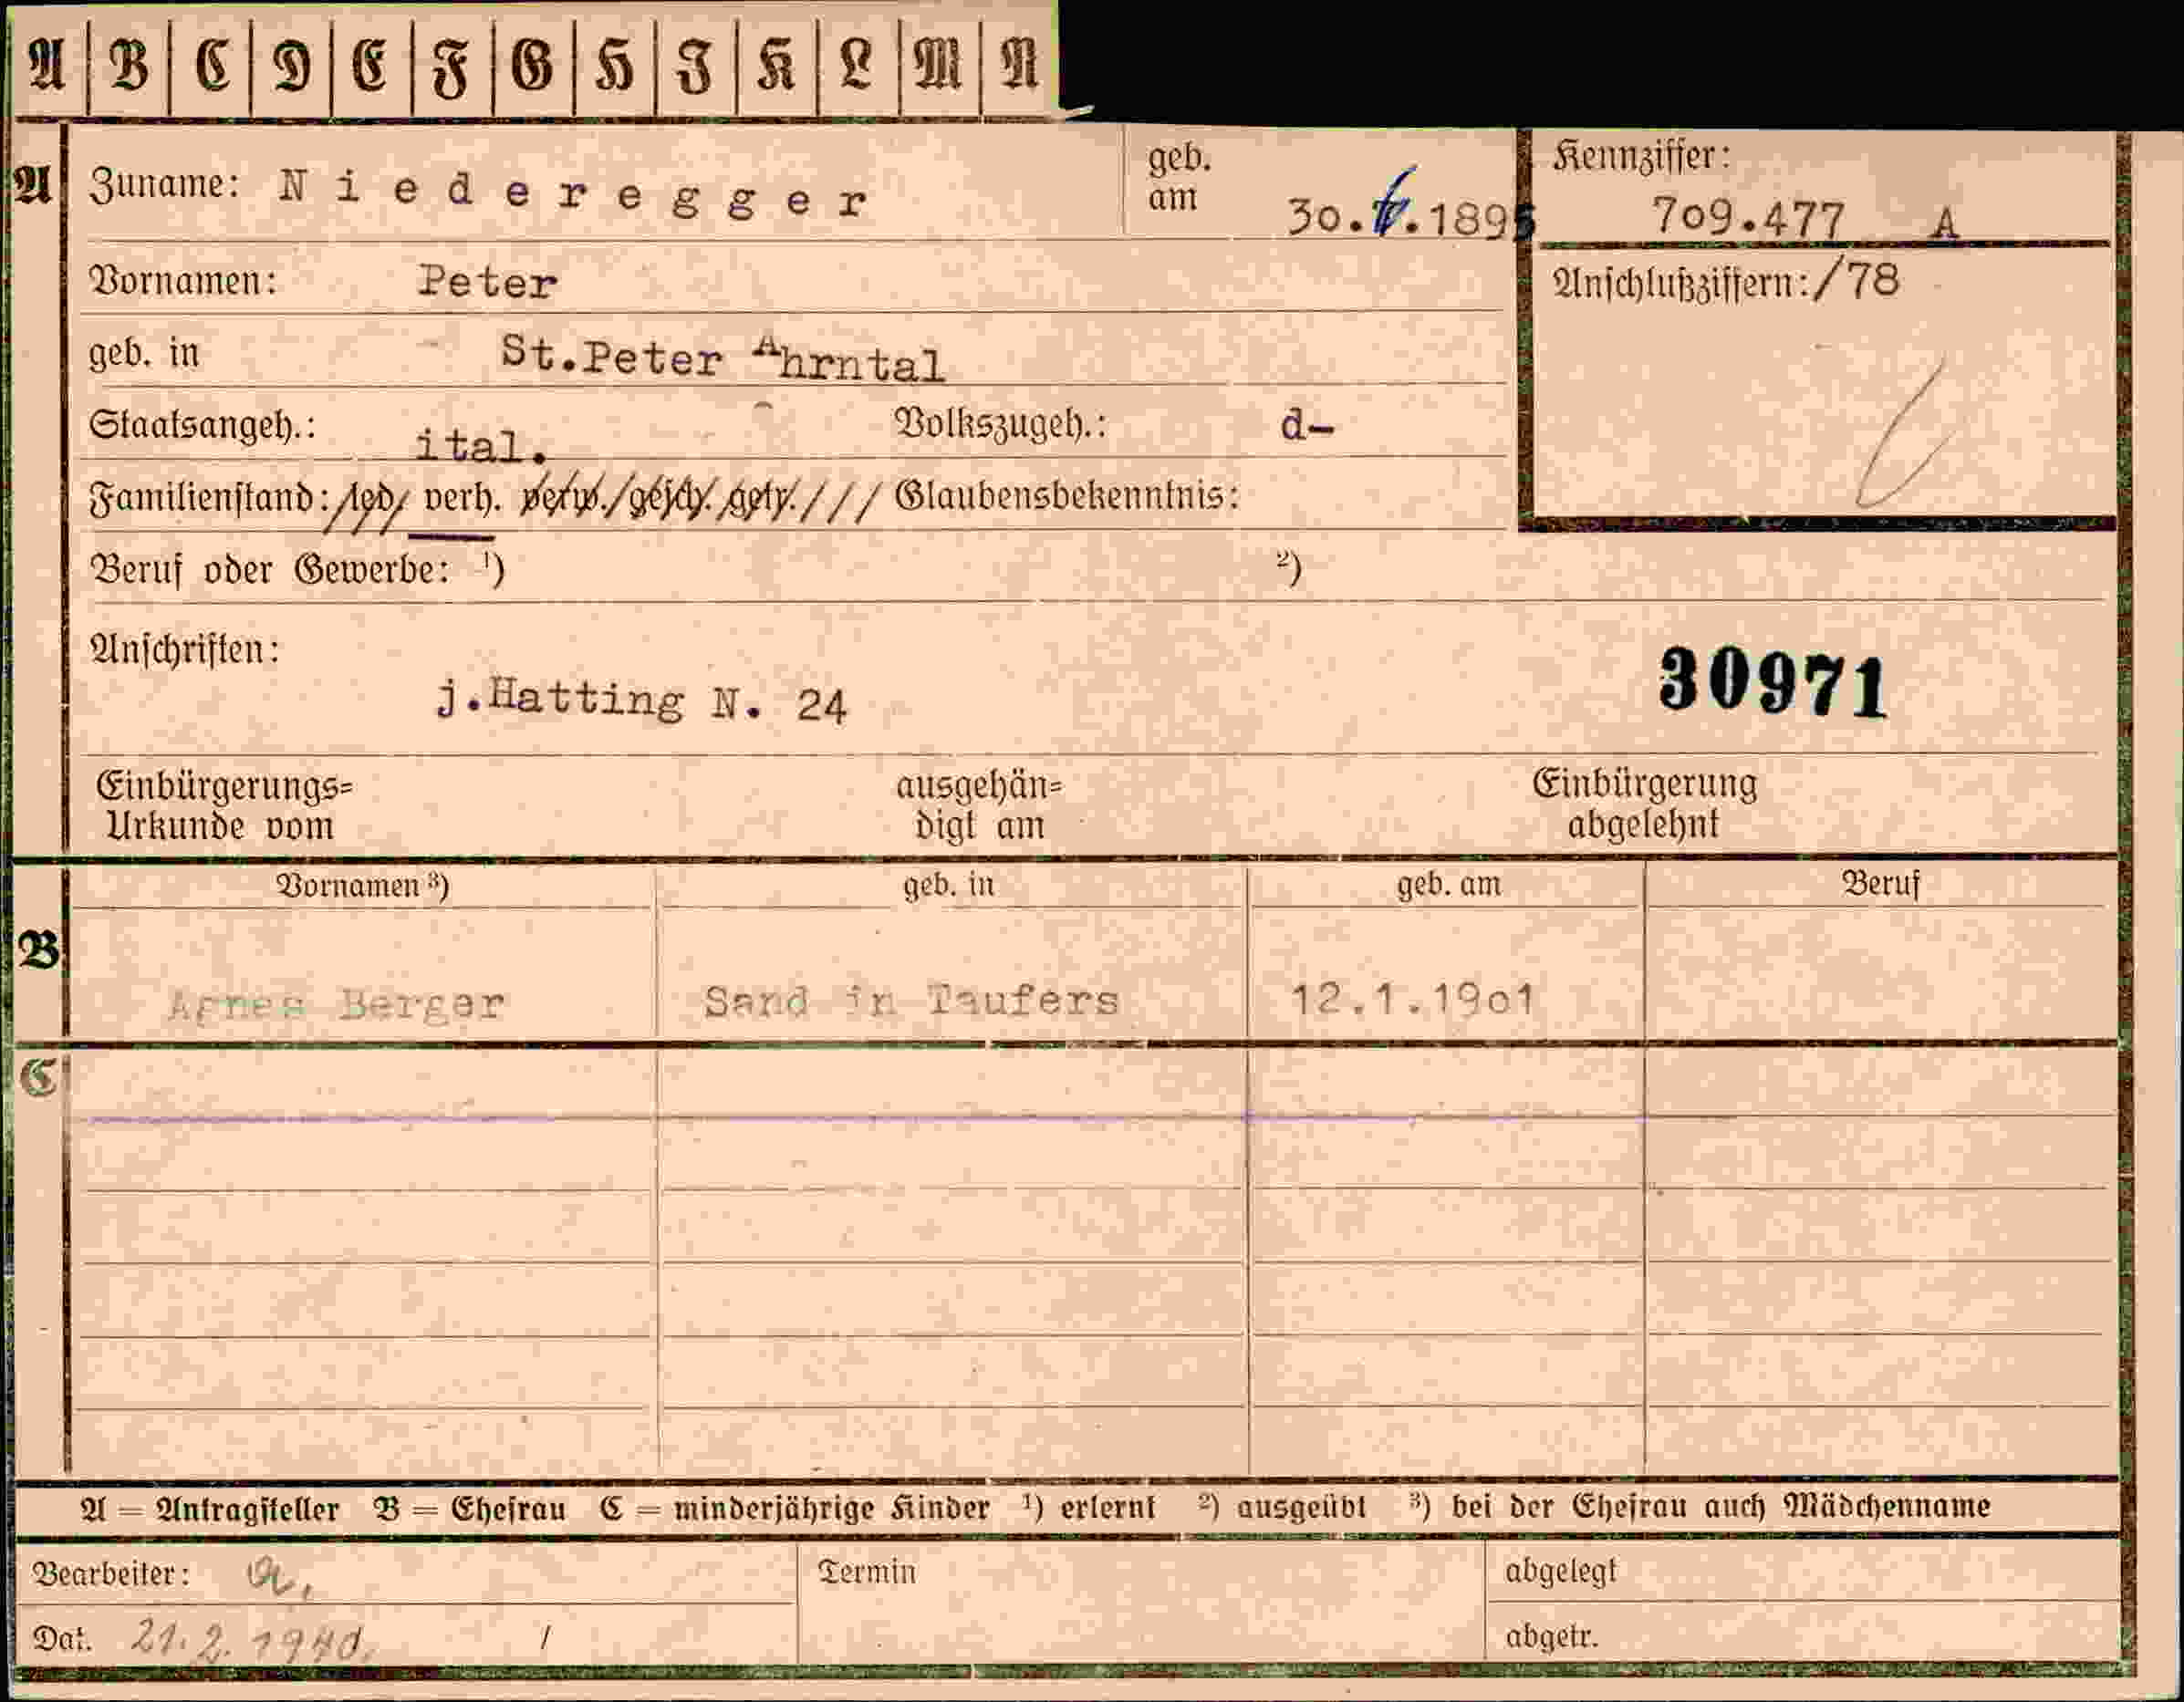 A B C D E F G H I K L M N
A Zuname: Niederegger geb. am 30.6.1895 Kennziffer: 709.477 A
Vornamen: Peter Anschlußziffern: /78
geb. in St.Peter Ahrntal
Staatsangeh.: ital. Volkszugeh.: d-
Familienstand: /led/ verh. verw./gesch./getr./// Glaubensbekenntnis:
Beruf oder Gewerbe: ¹) ²)
Anschriften: 30971
j.Hatting N. 24
Einbürgerungs= ausgehän= Einbürgerung
Urkunde vom digt am abgelehnt
Vornamen ³) geb. in geb. am Beruf
B
Agnes Berger Sand in Taufers 12.1.19o1
C
A = Antragsteller B = Ehefrau C = minderjährige Kinder ¹) erlernt ²) ausgeübt ³) bei der Ehefrau auch Mädchenname
Bearbeiter: Termin abgelegt
Dat. 21.2.1940. / abgetr.